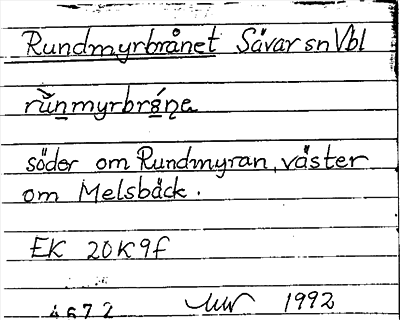 Rundmyrbrånet Sävar sn Vbl
söder om Rundmyran, väster
om Melsbäck.
EK 20K9f
4672 1992